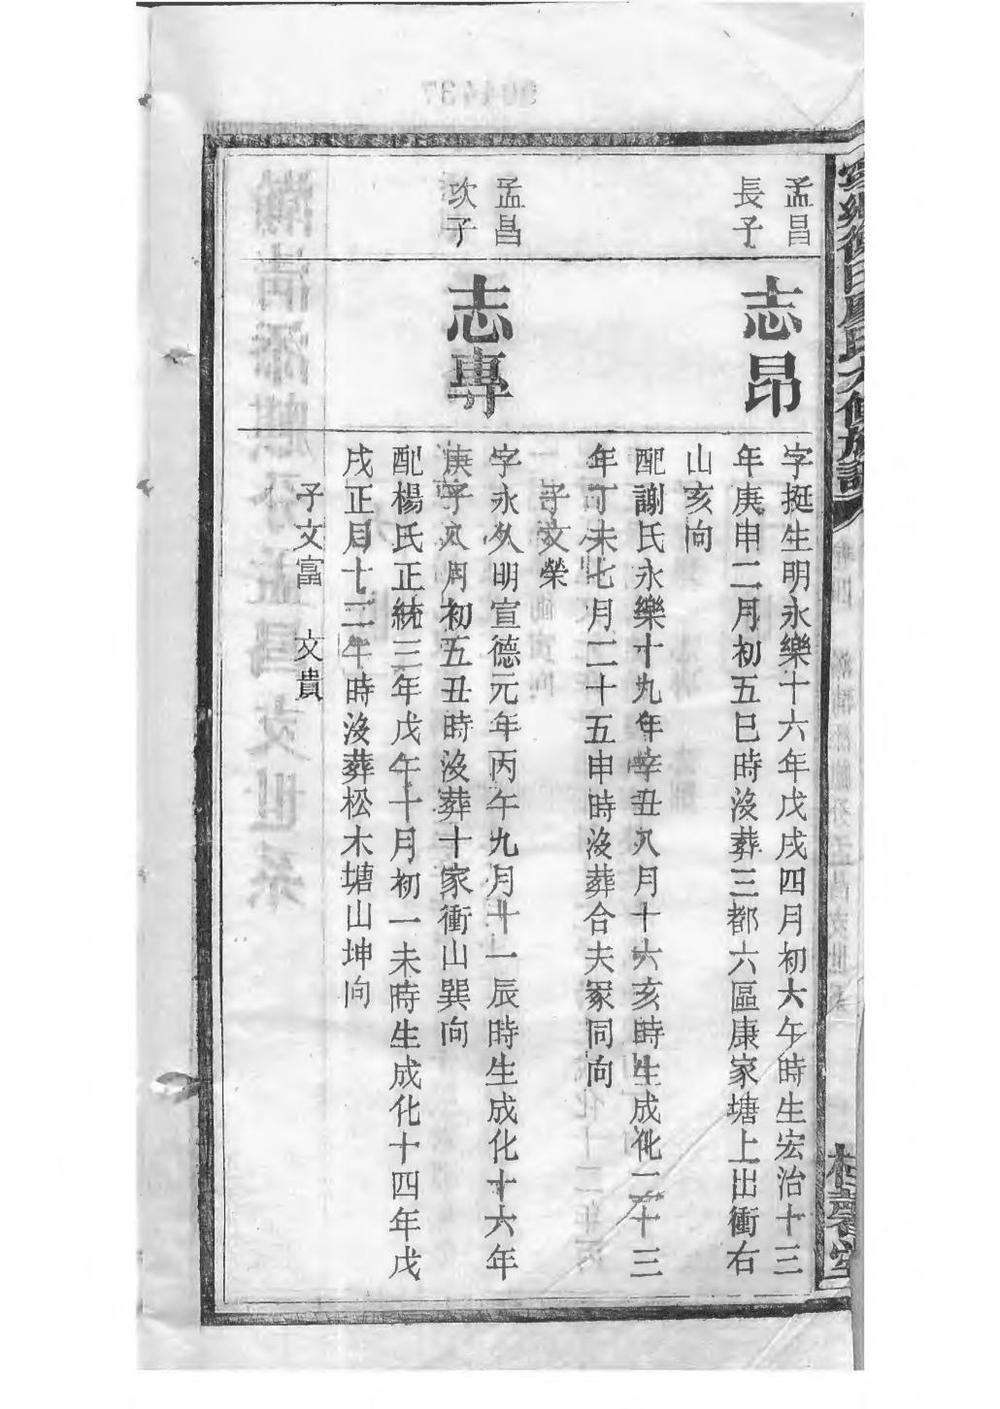 孟昌
長子
志昂
字挺生明永樂十六年戊戌四月初六午時生宏治十三
年庚申二月初五巳時沒葬三都六區康家塘上出衝右
山亥向
配謝氏永樂十九年辛丑八月十六亥時生成化二十三
年丁未七月二十五申時沒葬合夫冢同向
子文榮
孟昌
次子
志專
字永久明宣德元年丙午九月十一辰時生成化十六年
庚子八月初五丑時沒葬十家衝山巽向
配楊氏正統三年戊午十月初一未時生成化十四年戊
戌正月十二午時沒葬松木塘山坤向
子文富 文貴